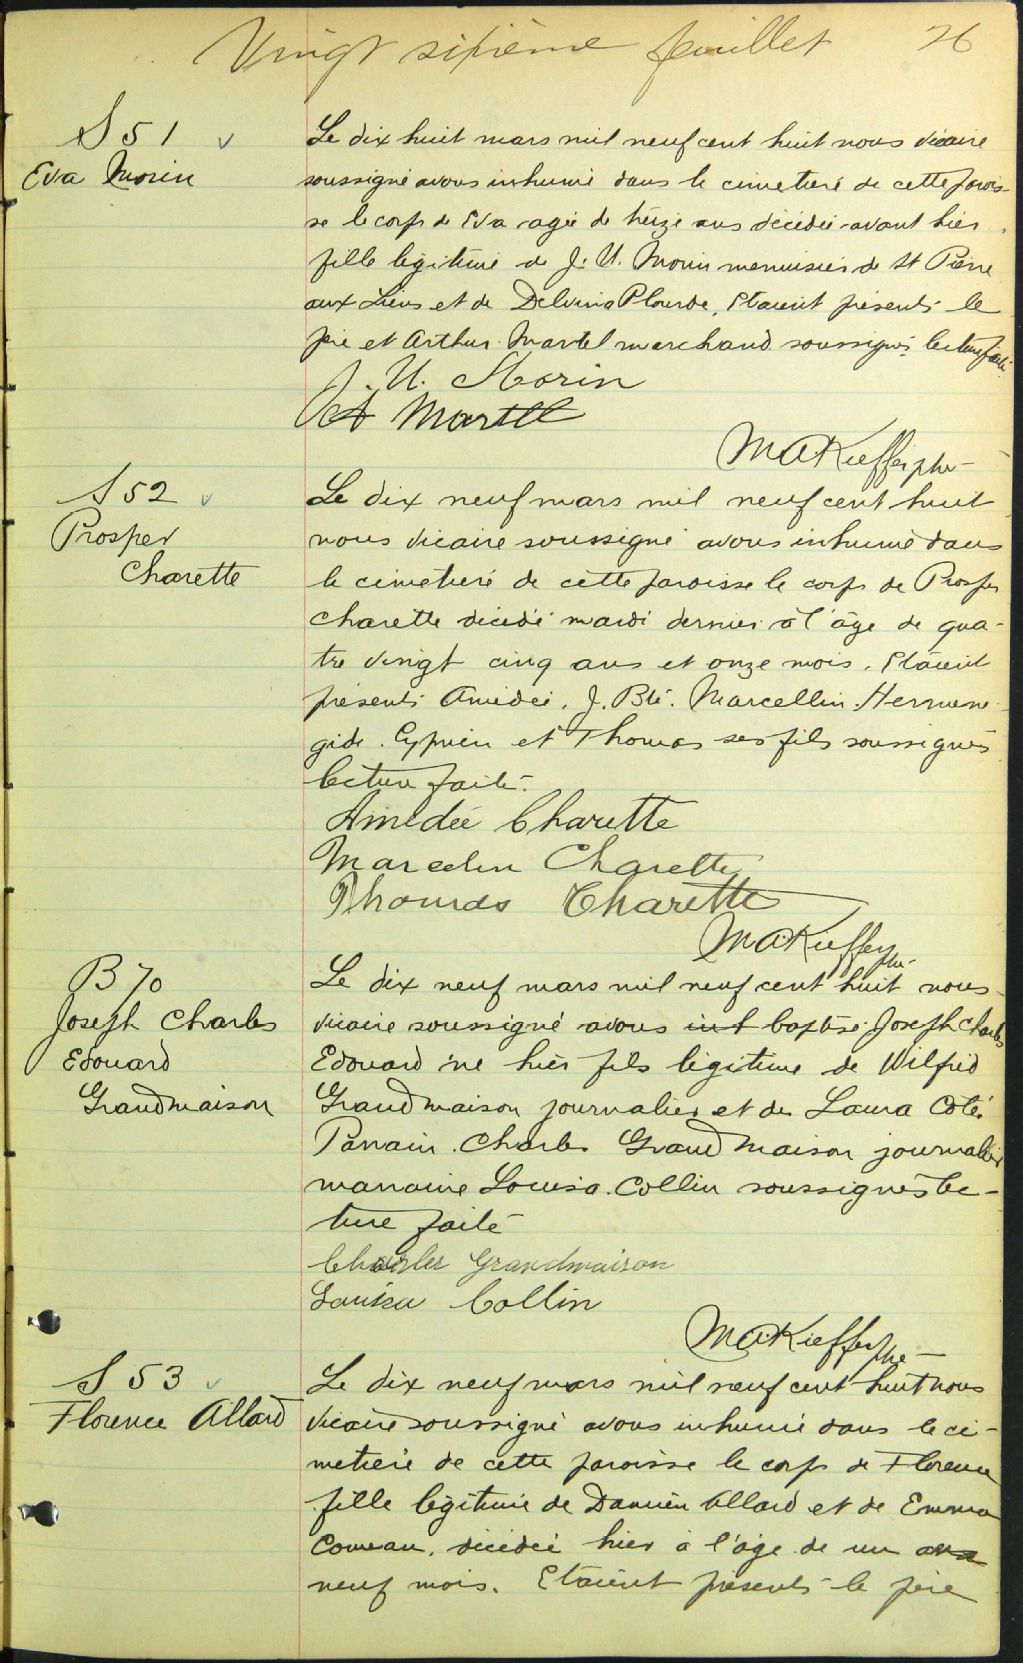 Vingt sixième feuillet 26
S 51
Eva Morin
Le dix huit mars mil neuf cent huit nous vicaire
soussigné avons inhumé dans le cimetière de cette parois-
se le corps de Eva agée de treize ans décédée avant hier
fille légitime de J. U. Morin menuisier de St Pierre
aux Liens et de Delvina Plourde. Etaient présents le
père et Arthur Martel marchand soussignés lecture faite
J. U. Morin
A Martel
M A Kieffer ptre
S 52
Prosper
Charette
Le dix neuf mars mil neuf cent huit
nous vicaire soussigné avons inhumé dans
le cimetière de cette paroisse le corps de Prosper
Charette décédé mardi dernier à l'âge de qua-
tre vingt cinq ans et onze mois. Etaient
présents Amédée, J. Bte. Marcellin. Hermene-
gide. Cyprien et Thomas ses fils soussignés
lecture faite.
Amédée Charette
Marcelin Charette
Thomas Charette
M A Kieffer ptre
B 70
Joseph Charles
Edouard
Grandmaison
Le dix neuf mars mil neuf cent huit nous
vicaire soussigné avons inh baptisé Joseph Charles
Edouard né hier fils légitime de Wilfrid
Grandmaison journalier et de Laura Coté.
Parrain Charles Grandmaison journalier
marraine Louisa Collin soussignés lec-
ture faite
Charles Grandmaison
Louisa Collin
M A Kieffer ptre
S 53
Florence Allard
Le dix neuf mars mil neuf cent huit nous
vicaire soussigné avons inhumé dans le ci-
metière de cette paroisse le corps de Florence
fille légitime de Damien Allard et de Emma
Comeau, décédée hier à l'âge de un ans
neuf mois. Etaient présents le père